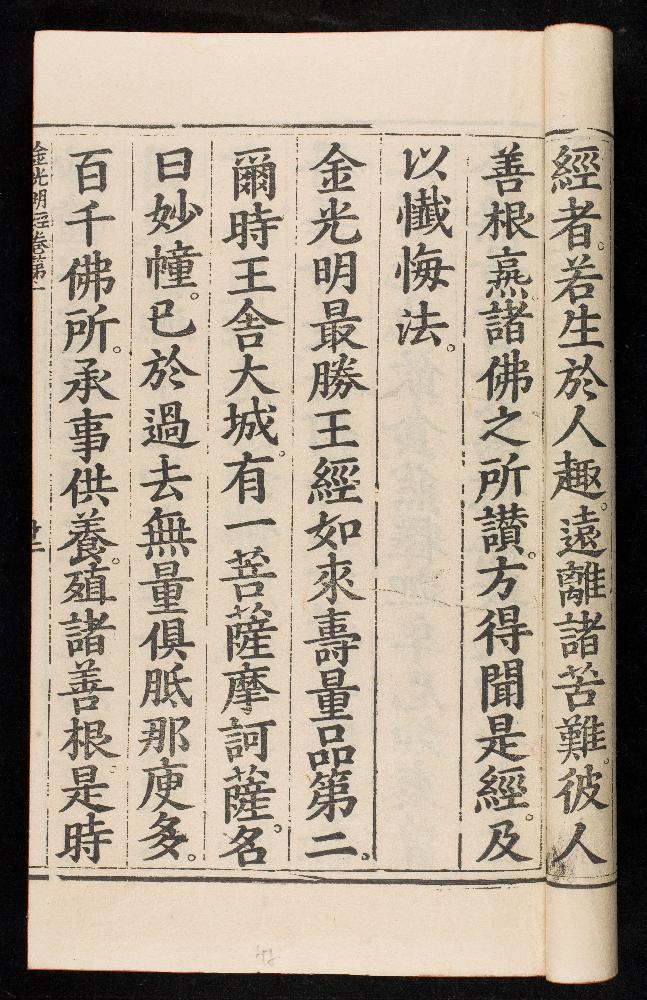 經者。若生於人趣。遠離諸苦難。彼人
善根熏。諸佛之所讚。方得聞是經。及
以懺悔法。
金光明最勝王經如來壽量品第二。
爾時王舍大城。有一菩薩摩訶薩。名
曰妙幢。已於過去無量俱胝那庾多。
百千佛所。承事供養。殖諸善根。是時
金光明經卷第一